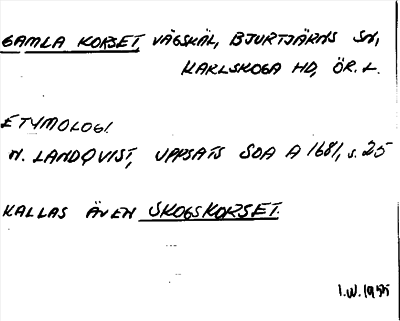 GAMLA KORSET VÄGSKÄL, BJURTJÄRNS SN,
KARLSKOGA HD, ÖR. L.
ETYMOLOGI.
N. LANDQVIST, UPPSATS SOA A 1681, s. 25
KALLAS ÄVEN SKOGSKORSET.
I.W. 1955